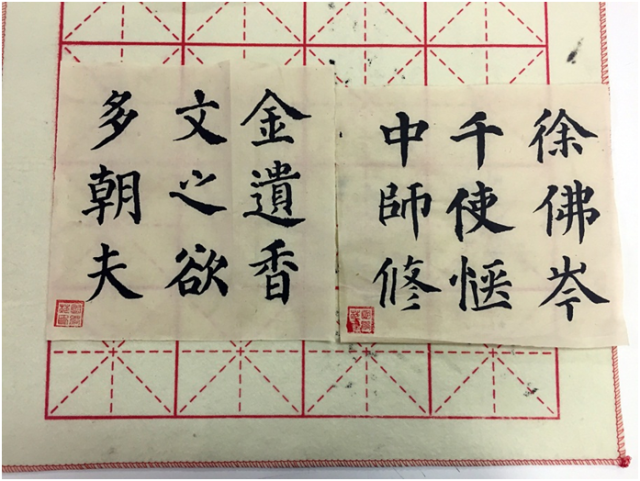 徐佛岑
千使愜
中師修
金遺香
文之欲
多朝夫